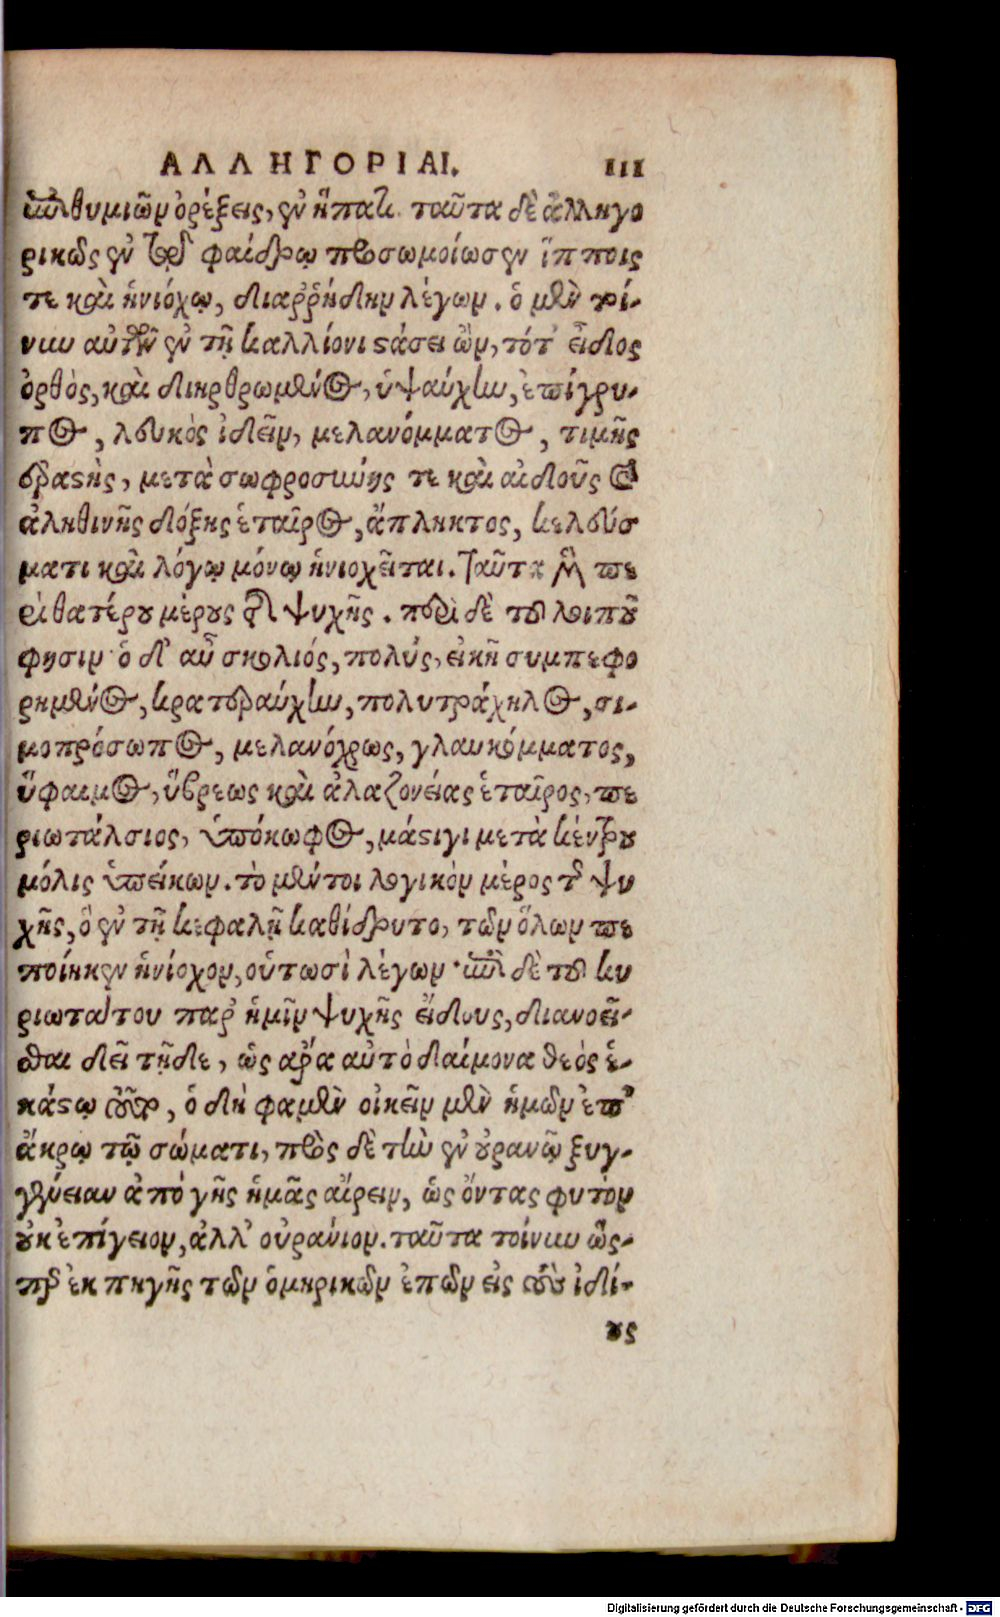 ΑΛΛΗΓΟΡΙΑΙ. 111
ἐπιθυμιῶν ὀρέξεις, ἐν ἥπατι. ταῦτα δὲ ἀλληγο
ρικῶς ἐν τῷ φαίδρῳ προσωμοίωσεν ἵπποις
τε καὶ ἡνιόχῳ, διαρῥήδην λέγων. ὁ μὲν τοί-
νυν αὐτῶν ἐν τῇ καλλίονι στάσει ὢν, τότ' εἶδος
ὀρθὸς, καὶ διηρθρωμένος, ὑψαύχην, ἐπίγρυ-
πος, λευκὸς ἰδεῖν, μελανόμματος, τιμῆς
ἐραστὴς, μετὰ σωφροσύνης τε καὶ αἰδοῦς καὶ
ἀληθινῆς δόξης ἑταῖρος, ἄπληκτος, κελεύσ
ματι καὶ λόγῳ μόνῳ ἡνιοχεῖται. Ταῦτα μὲν πε
ρὶ θατέρου μέρους τῆς ψυχῆς. περὶ δὲ τοῦ λοιποῦ
φησιν· ὁ δ' αὖ σκολιός, πολύς, εἰκῆ συμπεφο
ρημένος, κρατεραύχην, πολυτράχηλος, σι-
μοπρόσωπος, μελανόχρως, γλαυκόμματος,
ὕφαιμος, ὕβρεως καὶ ἀλαζονείας ἑταῖρος, πε
ριωτάλσιος, ὑπόκωφος, μάστιγι μετὰ κέντρου
μόλις ὑπείκων. τὸ μέντοι λογικὸν μέρος τῆς ψυ
χῆς, ὃ ἐν τῇ κεφαλῇ καθίδρυτο, τῶν ὅλων πε
ποίηκεν ἡνίοχον, οὑτωσὶ λέγων· ἐπὶ δὲ τοῦ κυ
ριωτάτου παρ' ἡμῖν ψυχῆς εἴδους, διανοεῖ-
σθαι δεῖ τῇδε, ὡς ἄρα αὐτὸ δαίμονα θεὸς ἑ-
κάστῳ δέδωκε, ὃ δή φαμεν οἰκεῖν μὲν ἡμῶν ἐπ'
ἄκρῳ τῷ σώματι, πρὸς δὲ τὴν ἐν οὐρανῷ ξυγ-
γένειαν ἀπὸ γῆς ἡμᾶς αἴρειν, ὡς ὄντας φυτὸν
οὐκ ἐπίγειον, ἀλλ' οὐράνιον. ταῦτα τοίνυν ὥς-
περ ἐκ πηγῆς τῶν ὁμηρικῶν ἐπῶν εἰς τοὺς ἰδί-
ους
Digitalisierung gefördert durch die Deutsche Forschungsgemeinschaft - DFG